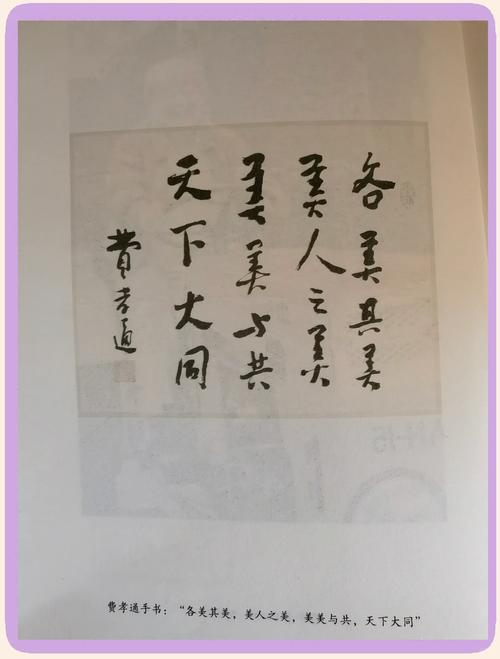 各美其美
美人之美
美美与共
天下大同
费孝通
费孝通手书：“各美其美，美人之美，美美与共，天下大同”